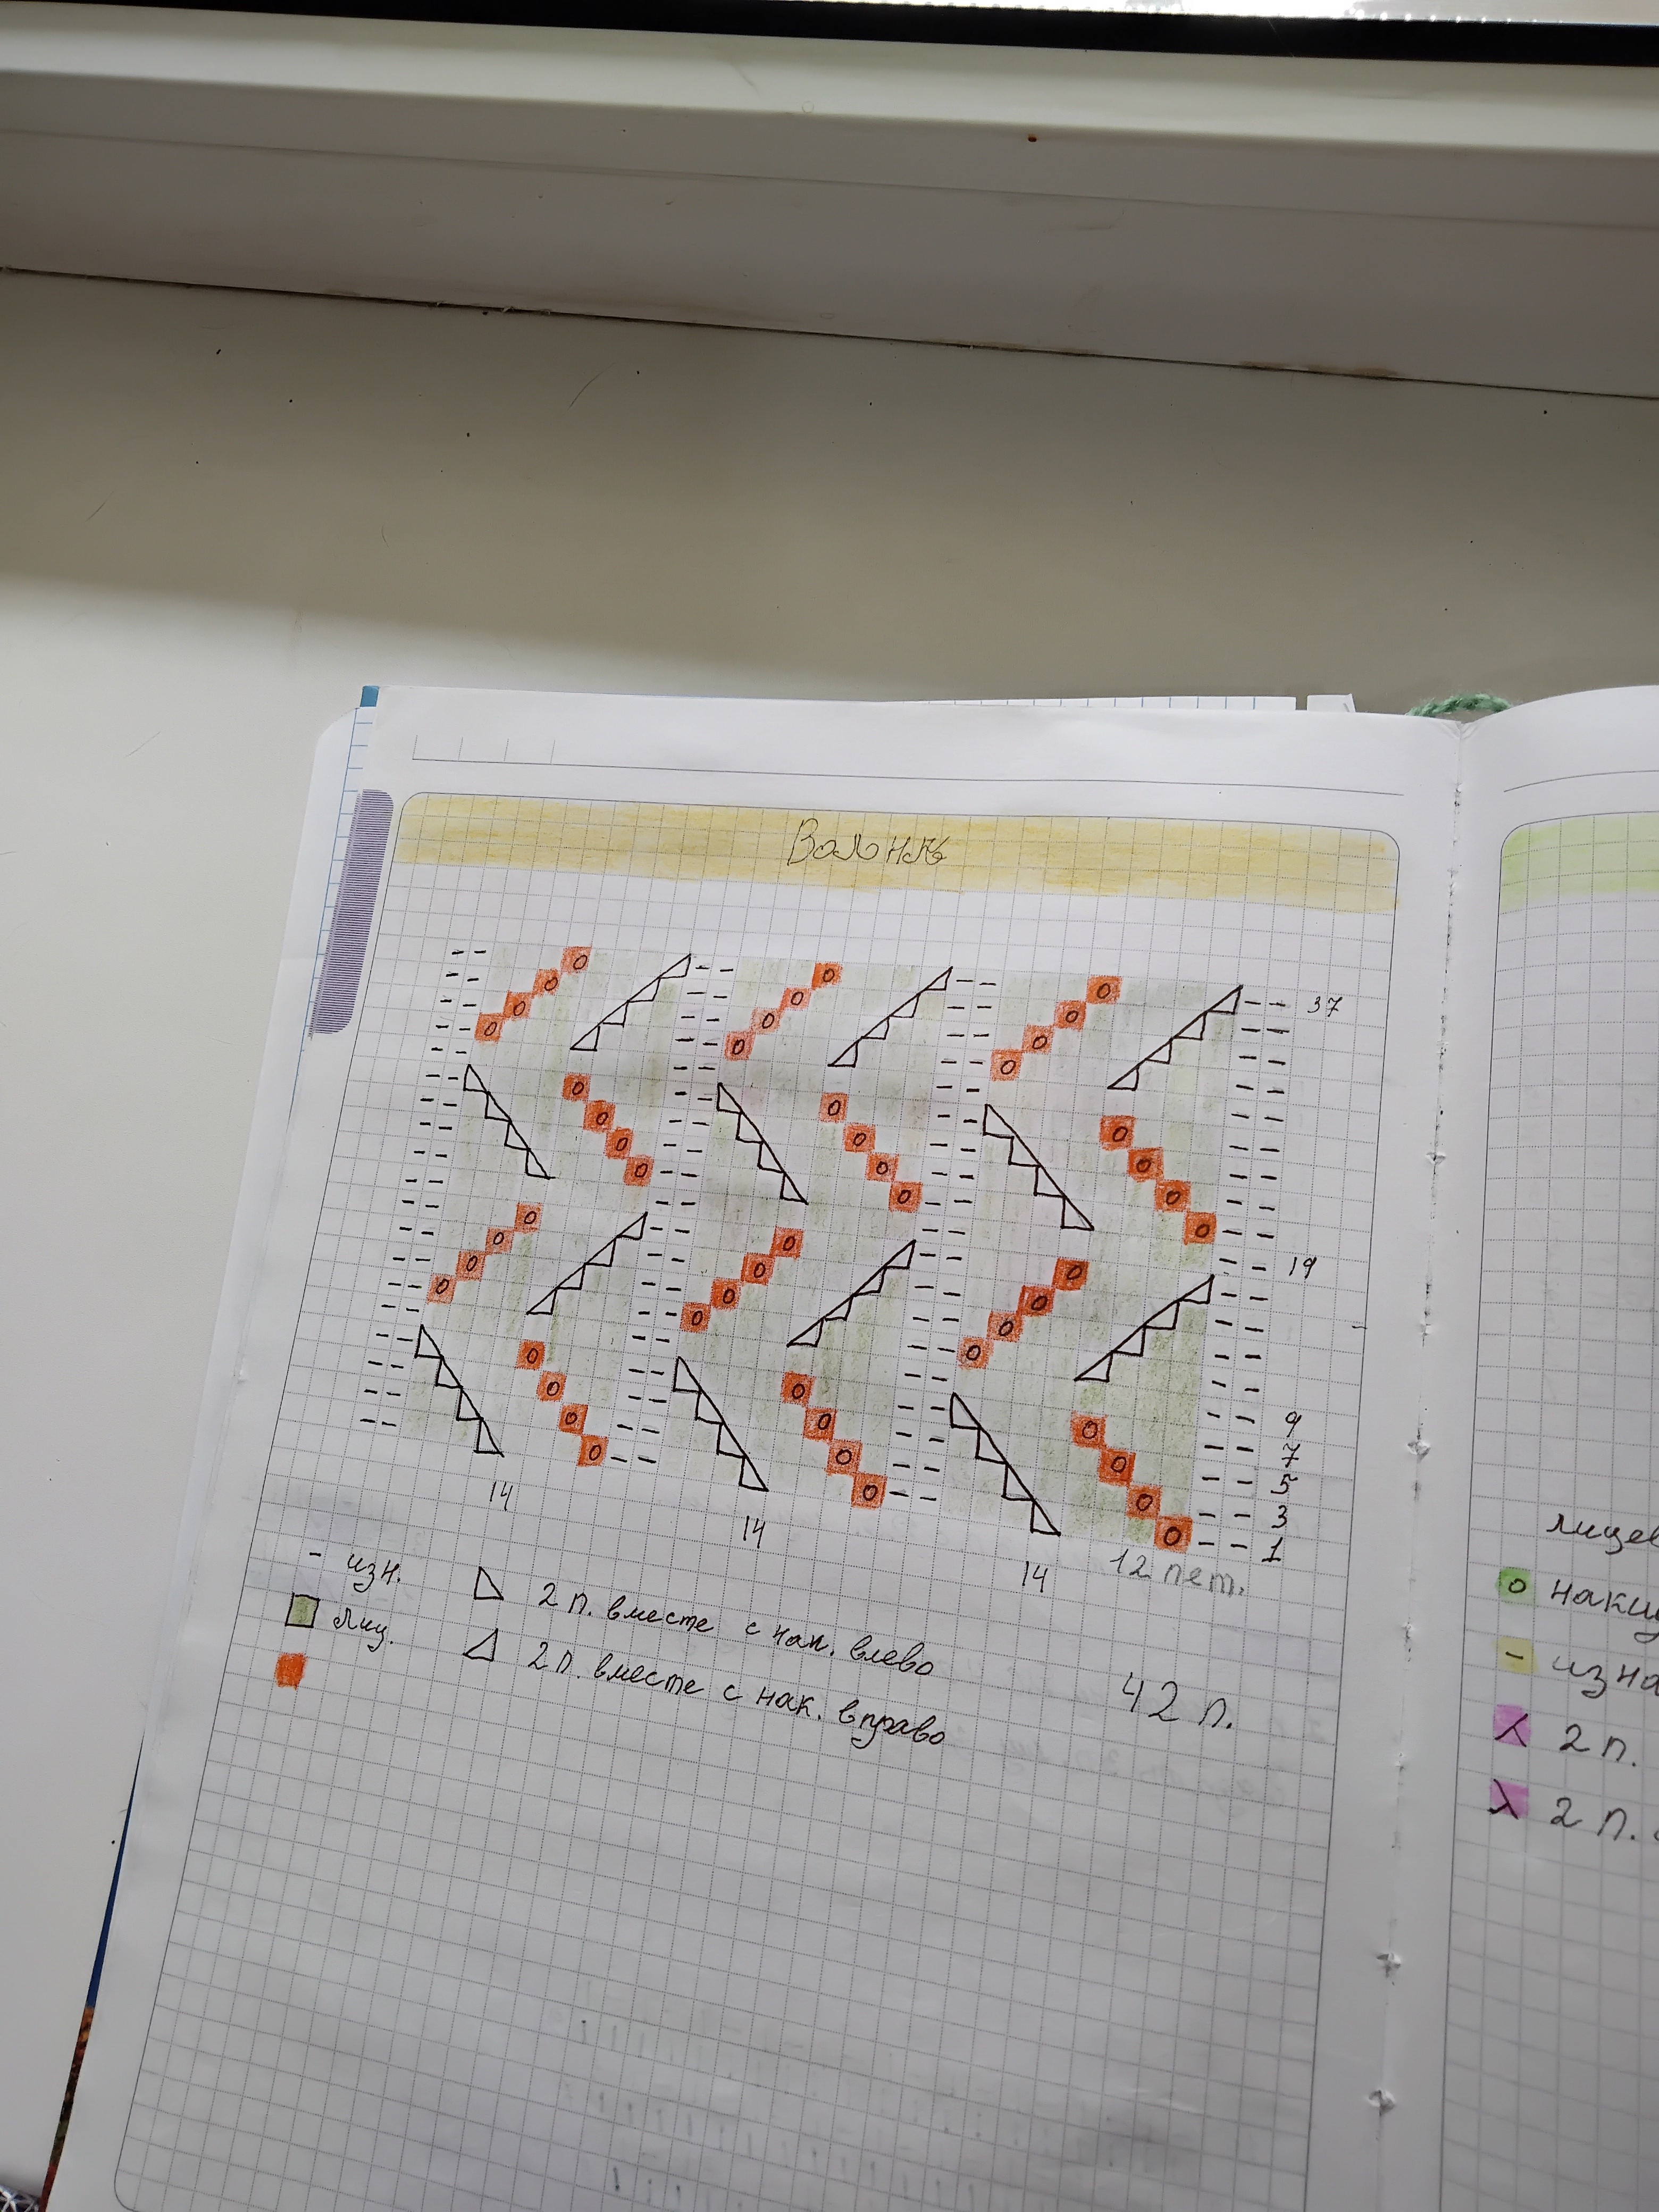 Волны
37
19
9
7
5
3
1
14
14
14
12 пет.
- изн.
2 п. вместе с нак. влево
лиц.
2 п. вместе с нак. вправо
42 п.
лицев
о накид
- изна
2 п.
2 п. с